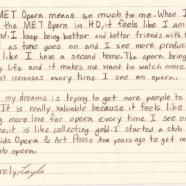 MET Opera means so much to me. When I
the MET Opera in HD, it feels like I am
d. I keep being better and better friends with t
as time goes on and I see more produc
like I have a second home. The opera bring
y life and it makes me want to watch more.
st increses every time I see an opera.
my dreams is trying to get more people to
It is really valuable because it feels like
g more love for opera every time I see on
e, it is like collecting gold. I started a club
ids Opera & Art Posse two years ago to get m
to opera.
rely, Layla